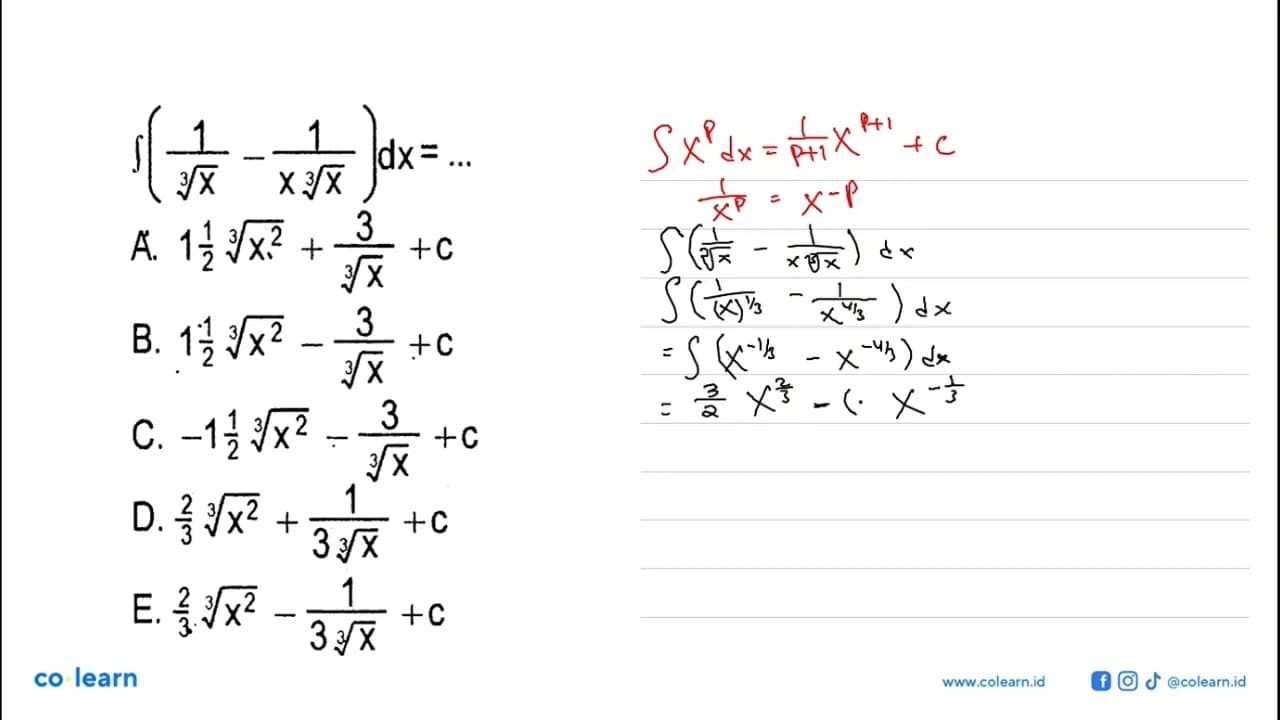 ∫(1/∛x − 1/(x∛x))dx = ...
A. 1 1/2 ∛x² + 3/∛x + c
B. 1 1/2 ∛x² − 3/∛x + c
C. −1 1/2 ∛x² − 3/∛x + c
D. 2/3 ∛x² + 1/(3∛x) + c
E. 2/3 ∛x² − 1/(3∛x) + c
∫ x^p dx = 1/(p+1) x^(p+1) + c
1/x^p = x^−p
∫(1/∛x − 1/(x∛x)) dx
∫(1/(x)^1/3 − 1/x^4/3) dx
= ∫(x^−1/3 − x^−4/3) dx
= 3/2 x^2/3 − (. x^−1/3
co learn
www.colearn.id
@colearn.id